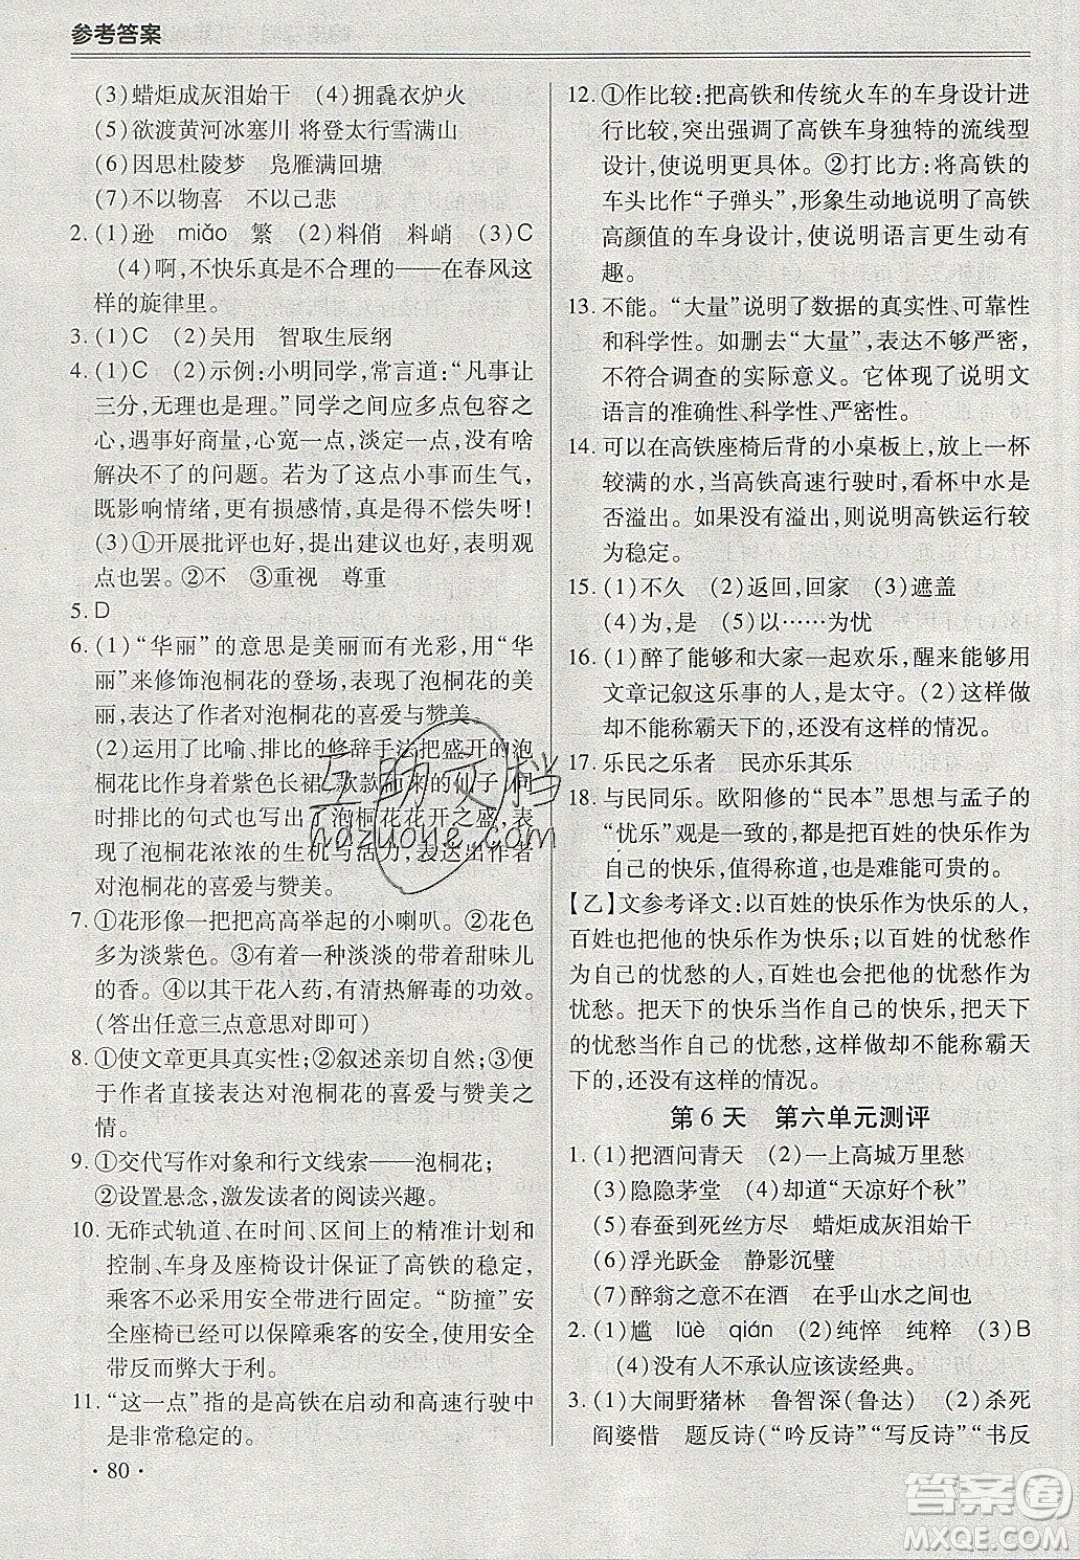 参考答案
(3)蜡炬成灰泪始干　(4)拥毳衣炉火
(5)欲渡黄河冰塞川 将登太行雪满山
(6)因思杜陵梦　凫雁满回塘
(7)不以物喜　不以己悲
2. (1)逊　miǎo　繁　(2)料俏　料峭　(3)C
(4)啊,不快乐真是不合理的——在春风这
样的旋律里。
3. (1)C　(2)吴用　智取生辰纲
4. (1)C　(2)示例:小明同学,常言道:“凡事让
三分,无理也是理。”同学之间应多点包容之
心,遇事好商量,心宽一点,淡定一点,没有啥
解决不了的问题。若为了这点小事而生气,
既影响情绪,更有损感情,实在得不偿失呀!
(3)①开展批评也好,提出建议也好,表明观
点也罢。②不　③重视　尊重
5. D
6. (1)“华丽”的意思是美丽而有光彩,用“华
丽”来修饰泡桐花的登场,表现了泡桐花的美
丽,表达了作者对泡桐花的喜爱与赞美。
(2)运用了比喻、排比的修辞手法把盛开的泡
桐花比作身着紫色长裙、款款而来的仙子,同
时排比的句式也写出了泡桐花花开之盛,表
现了泡桐花浓浓的生机与活力,表达出作者
对泡桐花的喜爱与赞美。
7. ①花形像一把把高高举起的小喇叭。②花色
多为淡紫色。③有着一种淡淡的带着甜味儿
的香。④以其干花入药,有清热解毒的功效。
(答出任意三点意思对即可)
8. ①使文章更具真实性;②叙述亲切自然;③便
于作者直接表达对泡桐花的喜爱与赞美之
情。
9. ①交代写作对象和行文线索——泡桐花;
②设置悬念,激发读者的阅读兴趣。
10. 无砟式轨道、在时间、区间上的精准计划和
控制、车身及座椅设计保证了高铁的稳定,
乘客不必采用安全带的保护。“防撞”安
全座椅已经可以保障乘客的安全,使用安全
带反而弊大于利。
11. “这一点”指的是高铁在启动和高速行驶中
是非常稳定的。
· 80 ·
12. ①作比较:把高铁和传统火车的车身设计进
行比较,突出强调了高铁车身独特的流线型
设计,使说明更具体。②打比方:将高铁的
车头比作“子弹头”,形象生动地说明了高铁
高颜值的车身设计,使说明语言更生动有
趣。
13. 不能。“大量”说明了数据的真实性、可靠性
和科学性。如删去“大量”,表达不够严密,
不符合调查的实际意义。它体现了说明文
语言的准确性、科学性、严密性。
14. 可以在高铁座椅后背的小桌板上,放上一杯
较满的水,当高铁高速行驶时,看杯中水是
否溢出。如果没有溢出,则说明高铁运行较
为稳定。
15. (1)不久　(2)返回,回家　(3)遮盖
(4)为,是　(5)以……为忧
16. (1)醉了能够和大家一起欢乐,醒来能够用
文章记叙这乐事的人,是太守。(2)这样做
却不能称霸天下的,还没有这样的情况。
17. 乐民之乐者　民亦乐其乐
18. 与民同乐。欧阳修的“民本”思想与孟子的
“忧乐”观是一致的,都是把百姓的快乐作为
自己的快乐,值得称赞,更是难能可贵的。
【乙】文参考译文:以百姓的快乐作为快乐的人,
百姓也把他的快乐作为快乐;以百姓的忧愁作
为自己的忧愁的人,百姓也会把他的忧愁作为
忧愁。把天下的快乐当作自己的快乐,把天下
的忧愁当作自己的忧愁,这样做却不能称霸天
下的,还没有这样的情况。
第 6 天　第六单元测评
1. (1)把酒问青天　(2)一上高城万里愁
(3)隐隐茅堂　(4)却道“天凉好个秋”
(5)春蚕到死丝方尽　蜡炬成灰泪始干
(6)浮光跃金　静影沉璧
(7)醉翁之意不在酒　在乎山水之间也
2. (1)尴　lüè　qián　(2)纯悴　纯粹　(3)B
(4)没有人不承认应该读经典。
3. (1)大闹野猪林　鲁智深(鲁达)　(2)杀死
阎婆惜　题反诗(“吟反诗”“写反诗”“书反
互助文档
hdzuoye.com
答案圈
MXQE.COM